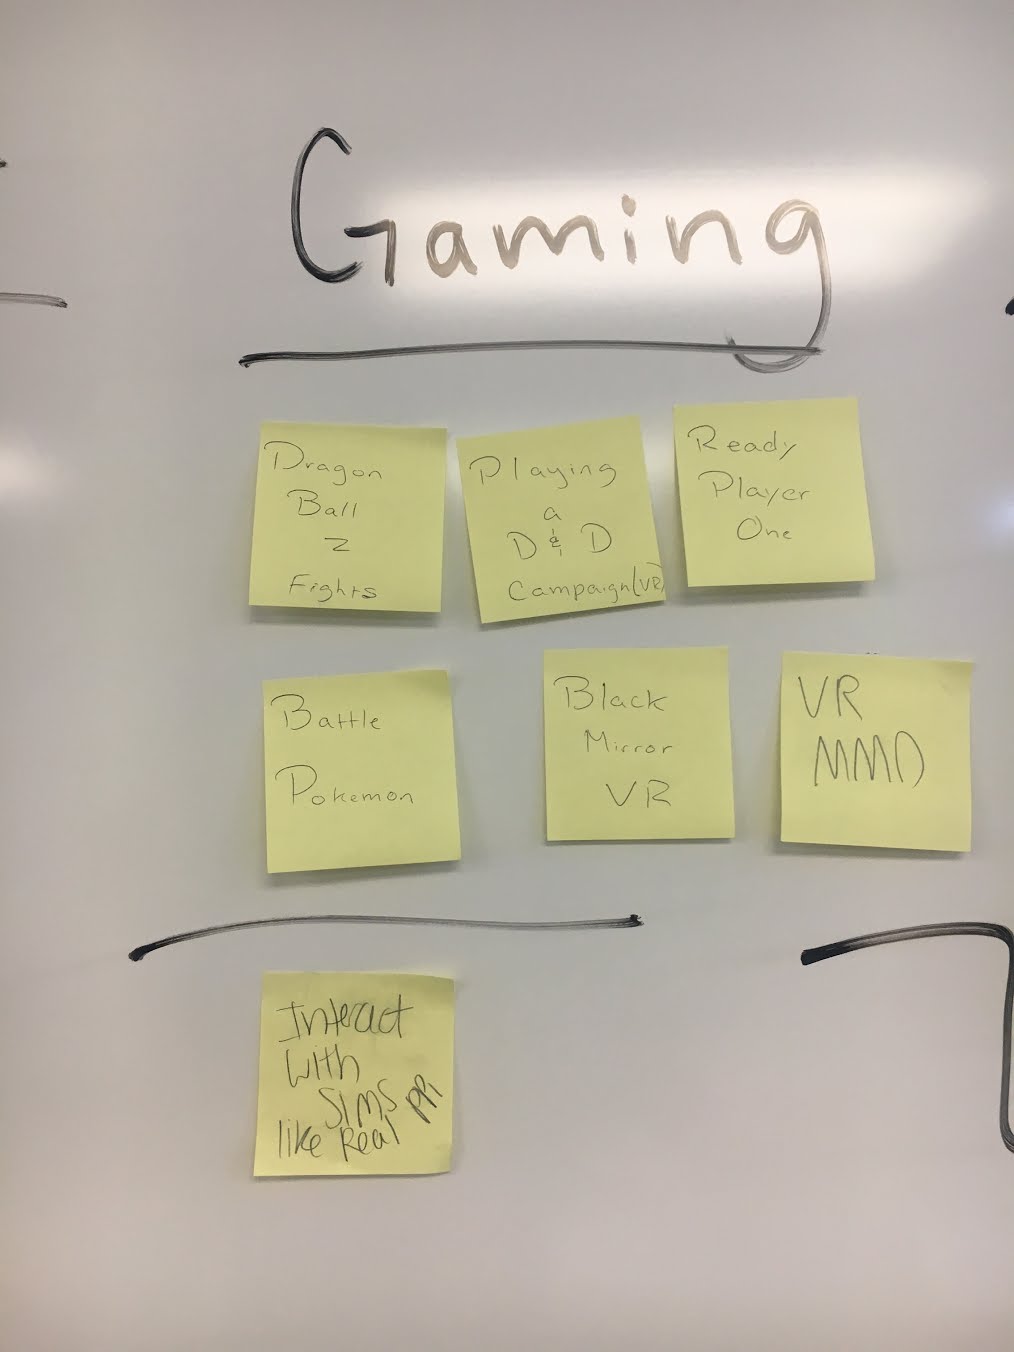 Gaming
Dragon
Ball
Z
Fights
Playing
a
D & D
Campaign (VR)
Ready
Player
One
Battle
Pokemon
Black
Mirror
VR
VR
MMO
Interact
with
SIMS
like Real ppl